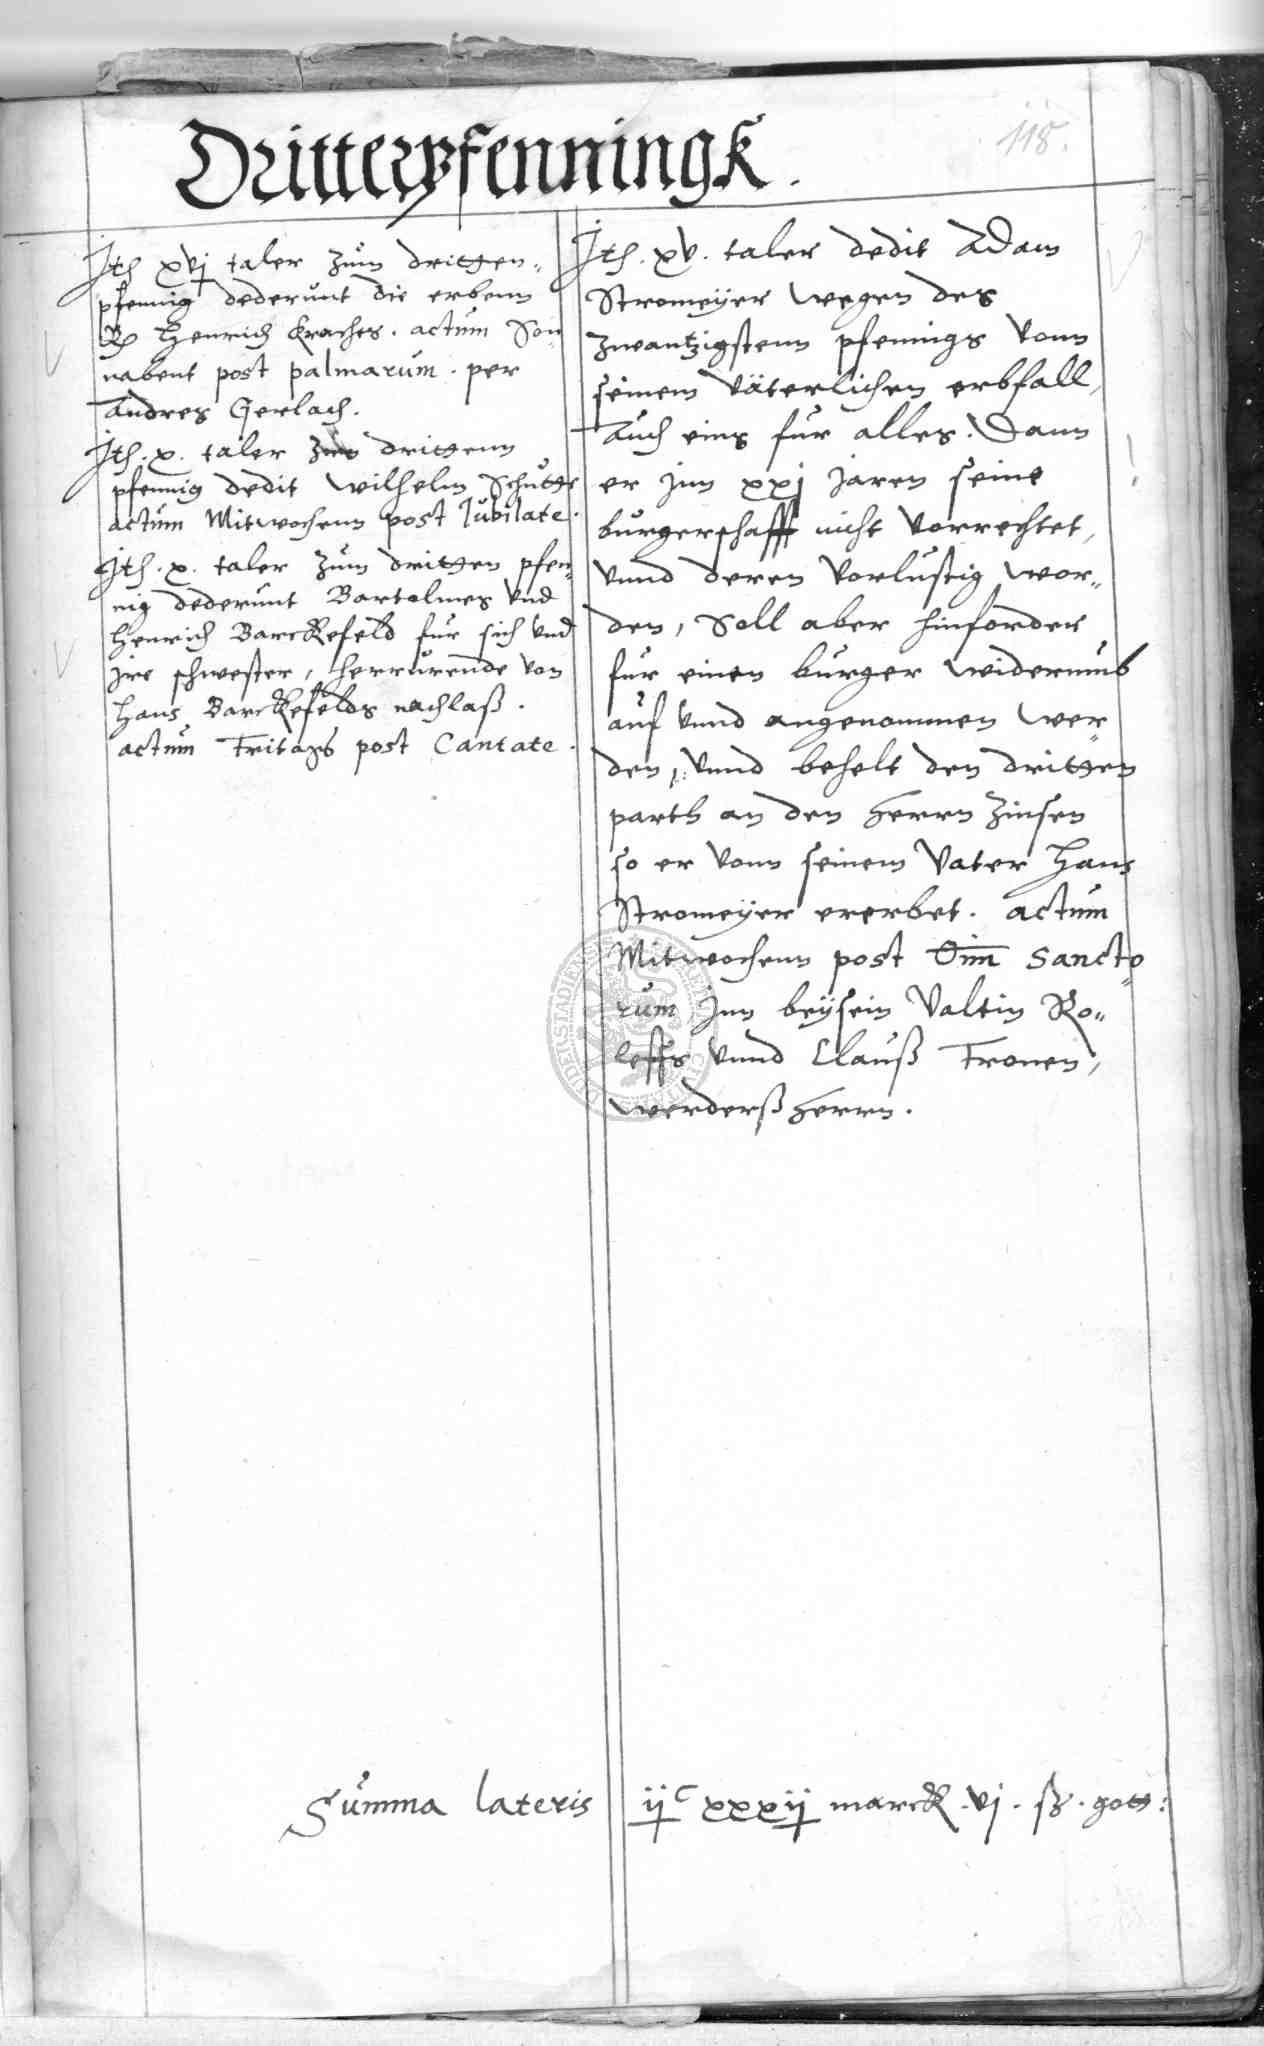 Dritterpfenningk.
118.
Ith xvj taler zum dritten-
pfennig dederunt die erbenn
Henrich Kraches. actum Son
nabent post palmarum. per
Andres Gerlach.
Ith. x. taler zum drittenn
pfennig dedit Wilhelm Schutze
actum Mitwochenn post Jubilate.
Ith. x. taler zum dritten pfen-
nig dederunt Bartolmes vnd
Henrich Barckefeld fur sich vnd
ire schwester, herrurende von
Hans Barckefelds nachlaß.
actum Fritags post Cantate.
Ith. xv. taler dedit Adam
Stromeÿer wegen des
zwantzigstenn pfennigs vonn
seinem väterlichen erbfall,
Auch eins fur alles. Dann
er jnn xxj jaren seine
burgerschafft nicht vorrechtet,
vnnd deren vorlustig wor-
den, Soll aber hinforder
fur einen burger widerumb
auf vnnd angenommen wer-
den, vnnd behelt den dritten
parth an den Herrn Zinsen
so er vonn seinem Vater Hans
Stromeÿer ererbet. actum
Mitwochenn post Oim Sancto-
rum jnn beÿsein Valtin Ro-
leffs vnnd Clauß Fronen,
werderß Herrn.
Summa lateris ijc xxxij marck. vj. ß. gott: